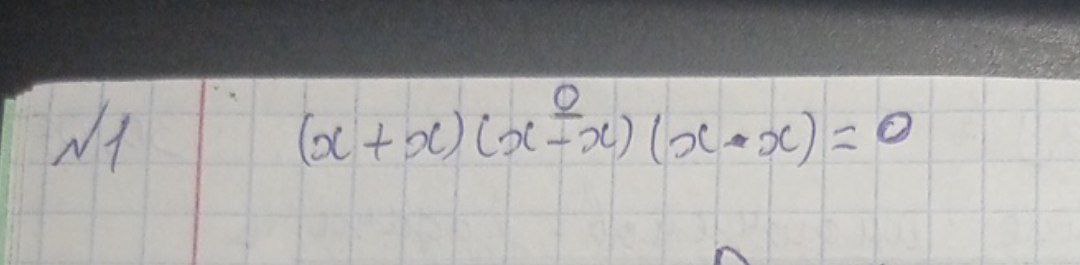 №1 (x + x) (x - x) (x · x) = 0
0